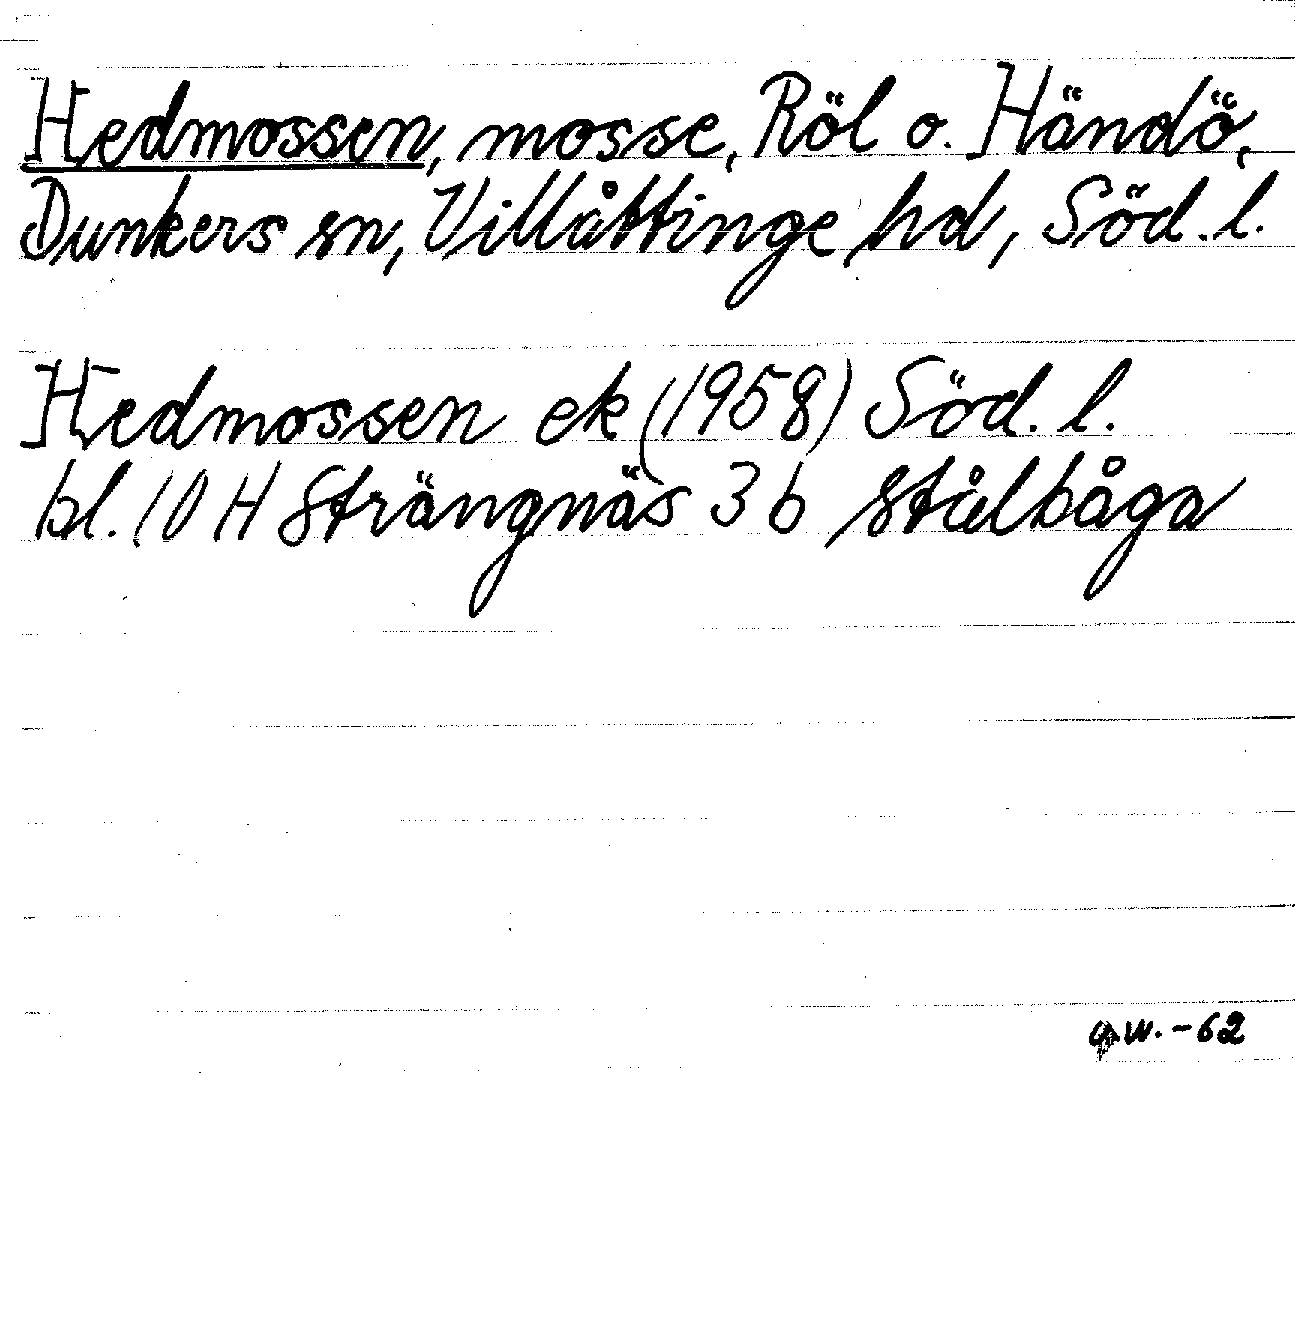 Hedmossen, mosse, Röl o. Händö,
Dunkers sn, Villåttinge hd, Söd. l.
Hedmossen ek (1958) Söd. l.
bl. 10 H Strängnäs 3 b Stålbåga
w. -62